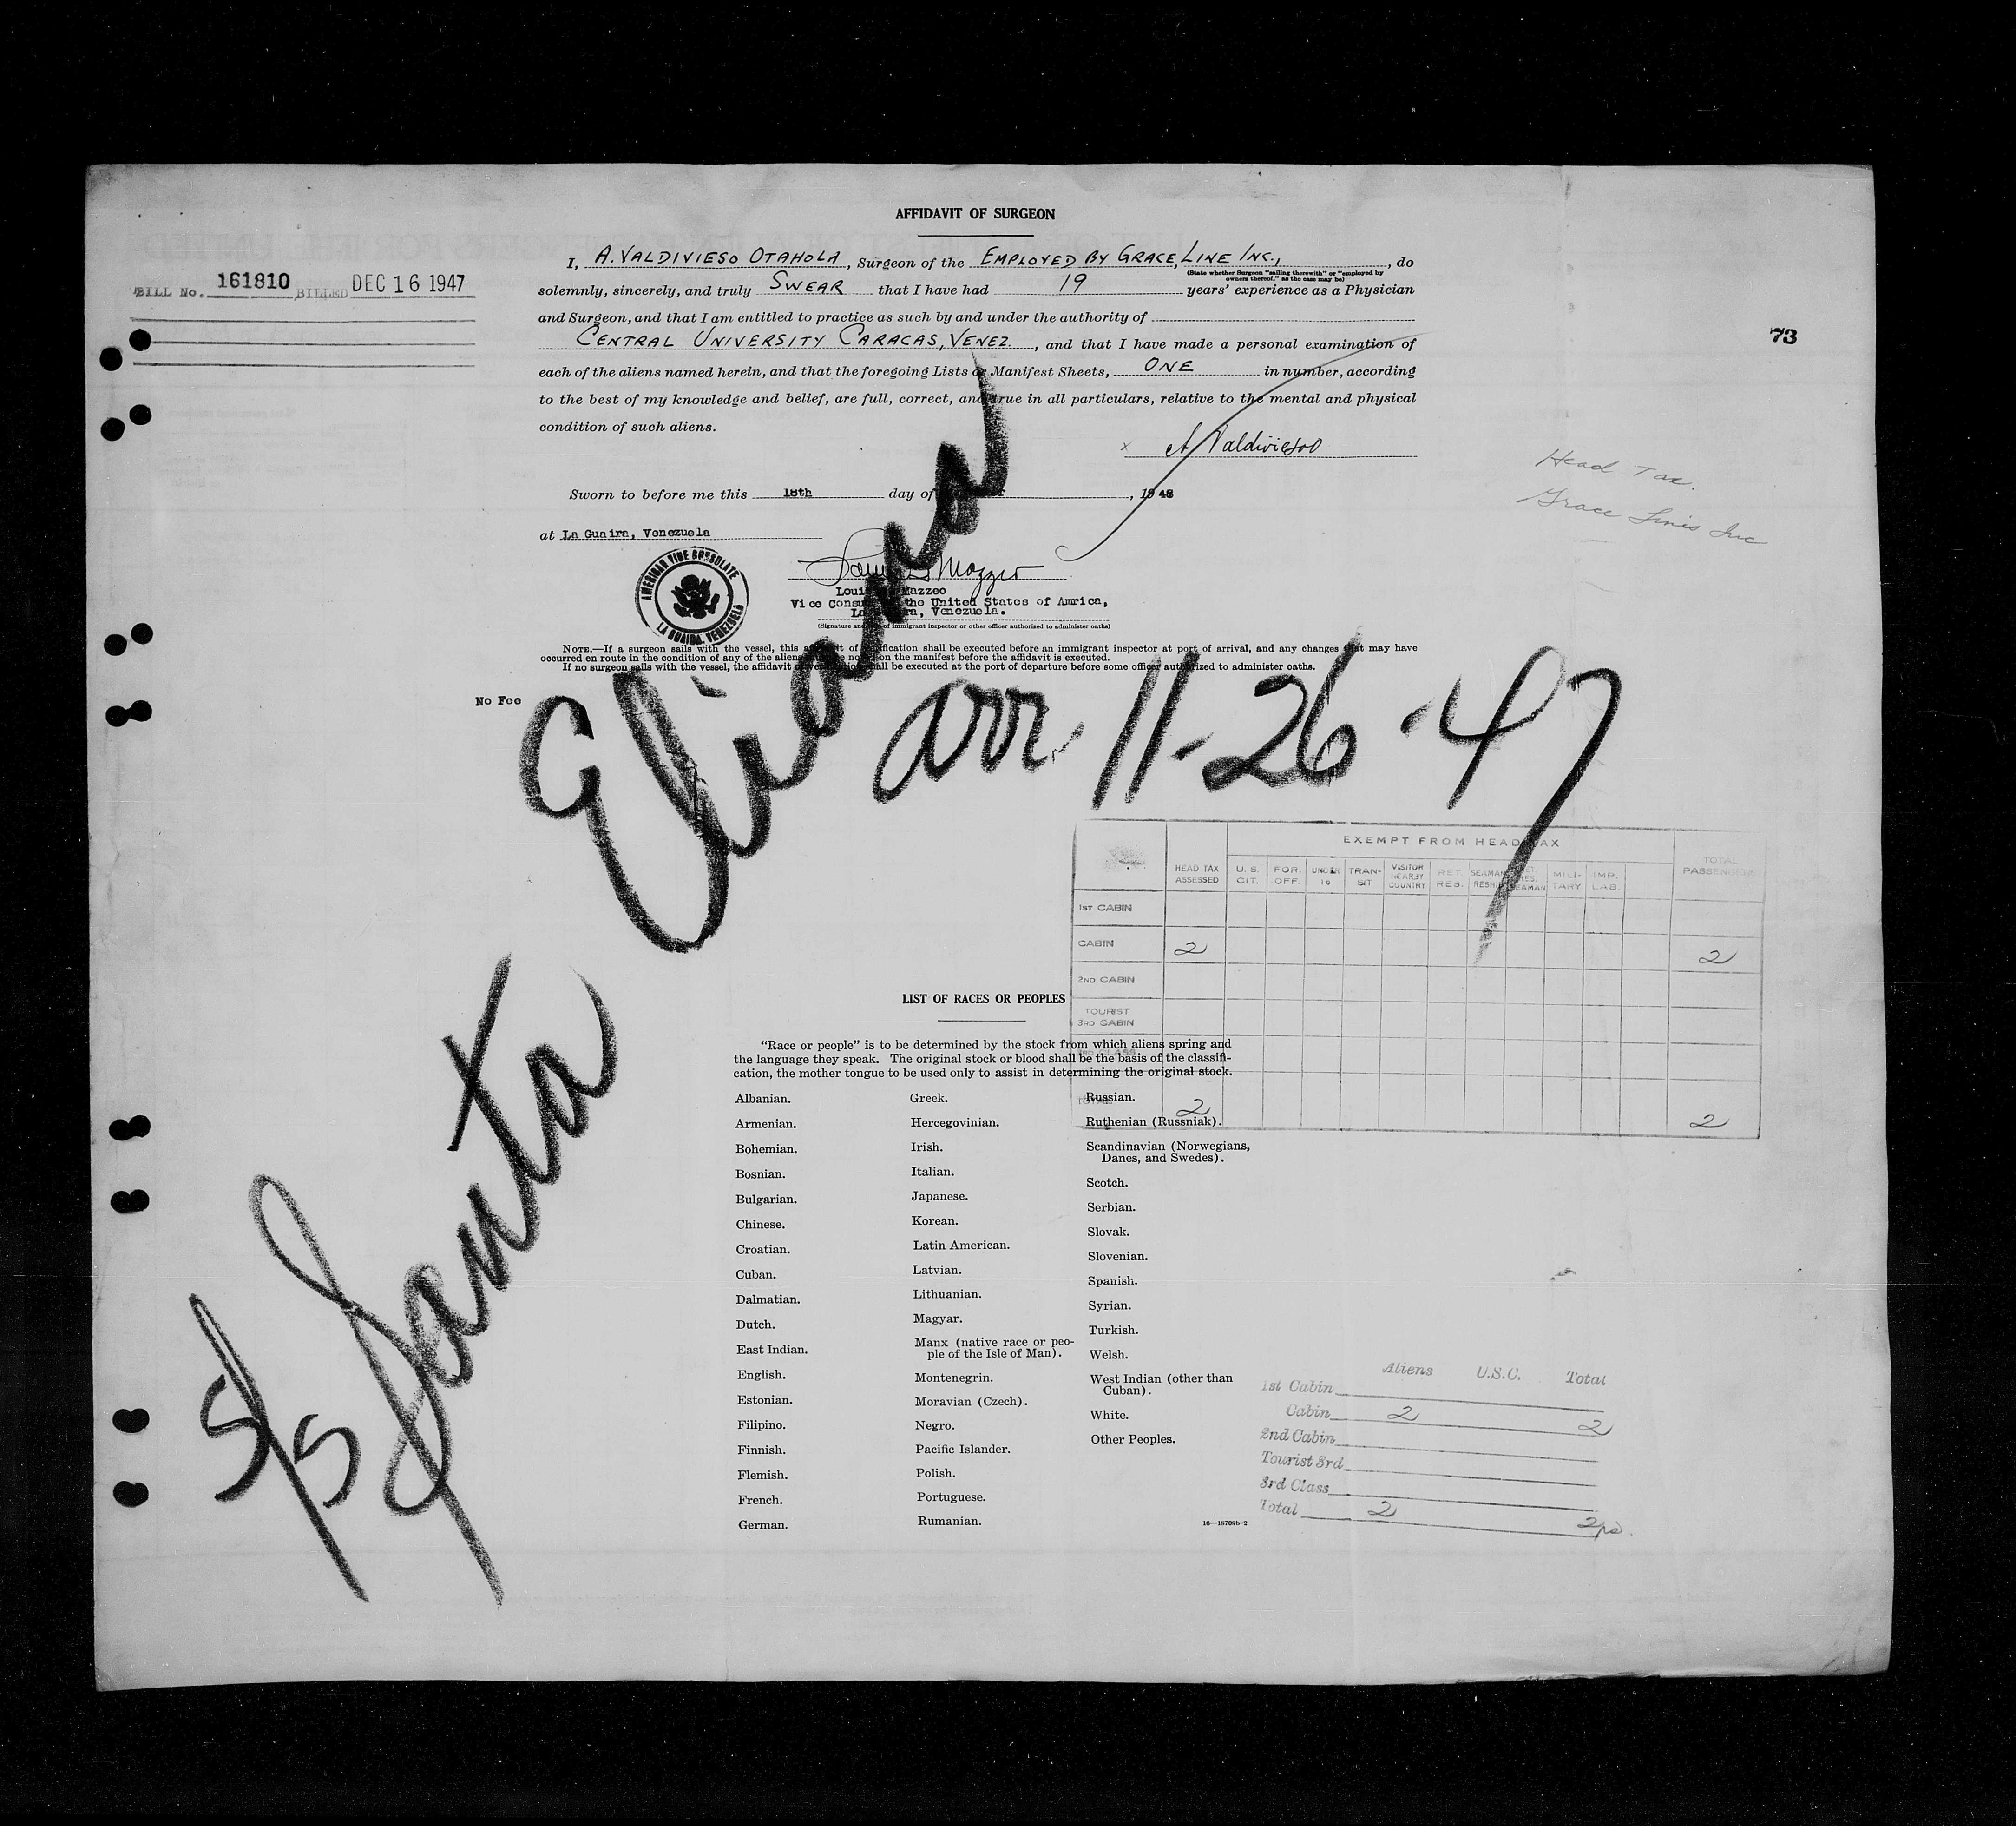 AFFIDAVIT OF SURGEON
BILL No. 161810 BILLED DEC 16 1947
I, A. VALDIVIESO OTAHOLA, Surgeon of the EMPLOYED BY GRACE LINE INC., do
(State whether Surgeon "sailing therewith" or "employed by
owners thereof," as the case may be)
solemnly, sincerely, and truly SWEAR that I have had 19 years' experience as a Physician
and Surgeon, and that I am entitled to practice as such by and under the authority of
CENTRAL UNIVERSITY CARACAS, VENEZ., and that I have made a personal examination of
73
each of the aliens named herein, and that the foregoing Lists or Manifest Sheets, ONE in number, according
to the best of my knowledge and belief, are full, correct, and true in all particulars, relative to the mental and physical
condition of such aliens.
x A Valdivieso
Head Tax.
Grace Lines Inc
Sworn to before me this 18th day of , 19
at La Guaira, Venezuela
AMERICAN VICE CONSULATE
LA GUAIRA, VENEZUELA
Louis Mazzeo
Vice Consul the United States of Amrica,
La , Venezuela.
(Signature and of immigrant inspector or other officer authorized to administer oaths)
NOTE.—If a surgeon sails with the vessel, this affidavit of verification shall be executed before an immigrant inspector at port of arrival, and any changes that may have
occurred en route in the condition of any of the aliens noted on the manifest before the affidavit is executed.
If no surgeon sails with the vessel, the affidavit of verification shall be executed at the port of departure before some officer authorized to administer oaths.
No Fee
S/S Santa Eliana
arr. 11-26-47
EXEMPT FROM HEAD TAX
HEAD TAX ASSESSED U.S. CIT. FOR. OFF. UNDER 16 TRAN-SIT VISITOR NEARBY COUNTRY RET. RES. SEAMAN RESHIP RES. SEAMAN MILI-TARY IMP. LAB. TOTAL PASSENGERS
1ST CABIN
CABIN 2 2
2ND CABIN
TOURIST
3RD CABIN
3RD CLASS
TOTAL 2 2
LIST OF RACES OR PEOPLES
"Race or people" is to be determined by the stock from which aliens spring and
the language they speak. The original stock or blood shall be the basis of the classifi-
cation, the mother tongue to be used only to assist in determining the original stock.
Albanian.
Armenian.
Bohemian.
Bosnian.
Bulgarian.
Chinese.
Croatian.
Cuban.
Dalmatian.
Dutch.
East Indian.
English.
Estonian.
Filipino.
Finnish.
Flemish.
French.
German.
Greek.
Hercegovinian.
Irish.
Italian.
Japanese.
Korean.
Latin American.
Latvian.
Lithuanian.
Magyar.
Manx (native race or peo-
ple of the Isle of Man).
Montenegrin.
Moravian (Czech).
Negro.
Pacific Islander.
Polish.
Portuguese.
Rumanian.
Russian.
Ruthenian (Russniak).
Scandinavian (Norwegians,
Danes, and Swedes).
Scotch.
Serbian.
Slovak.
Slovenian.
Spanish.
Syrian.
Turkish.
Welsh.
West Indian (other than
Cuban).
White.
Other Peoples.
16—18709b-2
Aliens U.S.C. Total
1st Cabin
Cabin 2 2
2nd Cabin
Tourist 3rd
3rd Class
Total 2 2